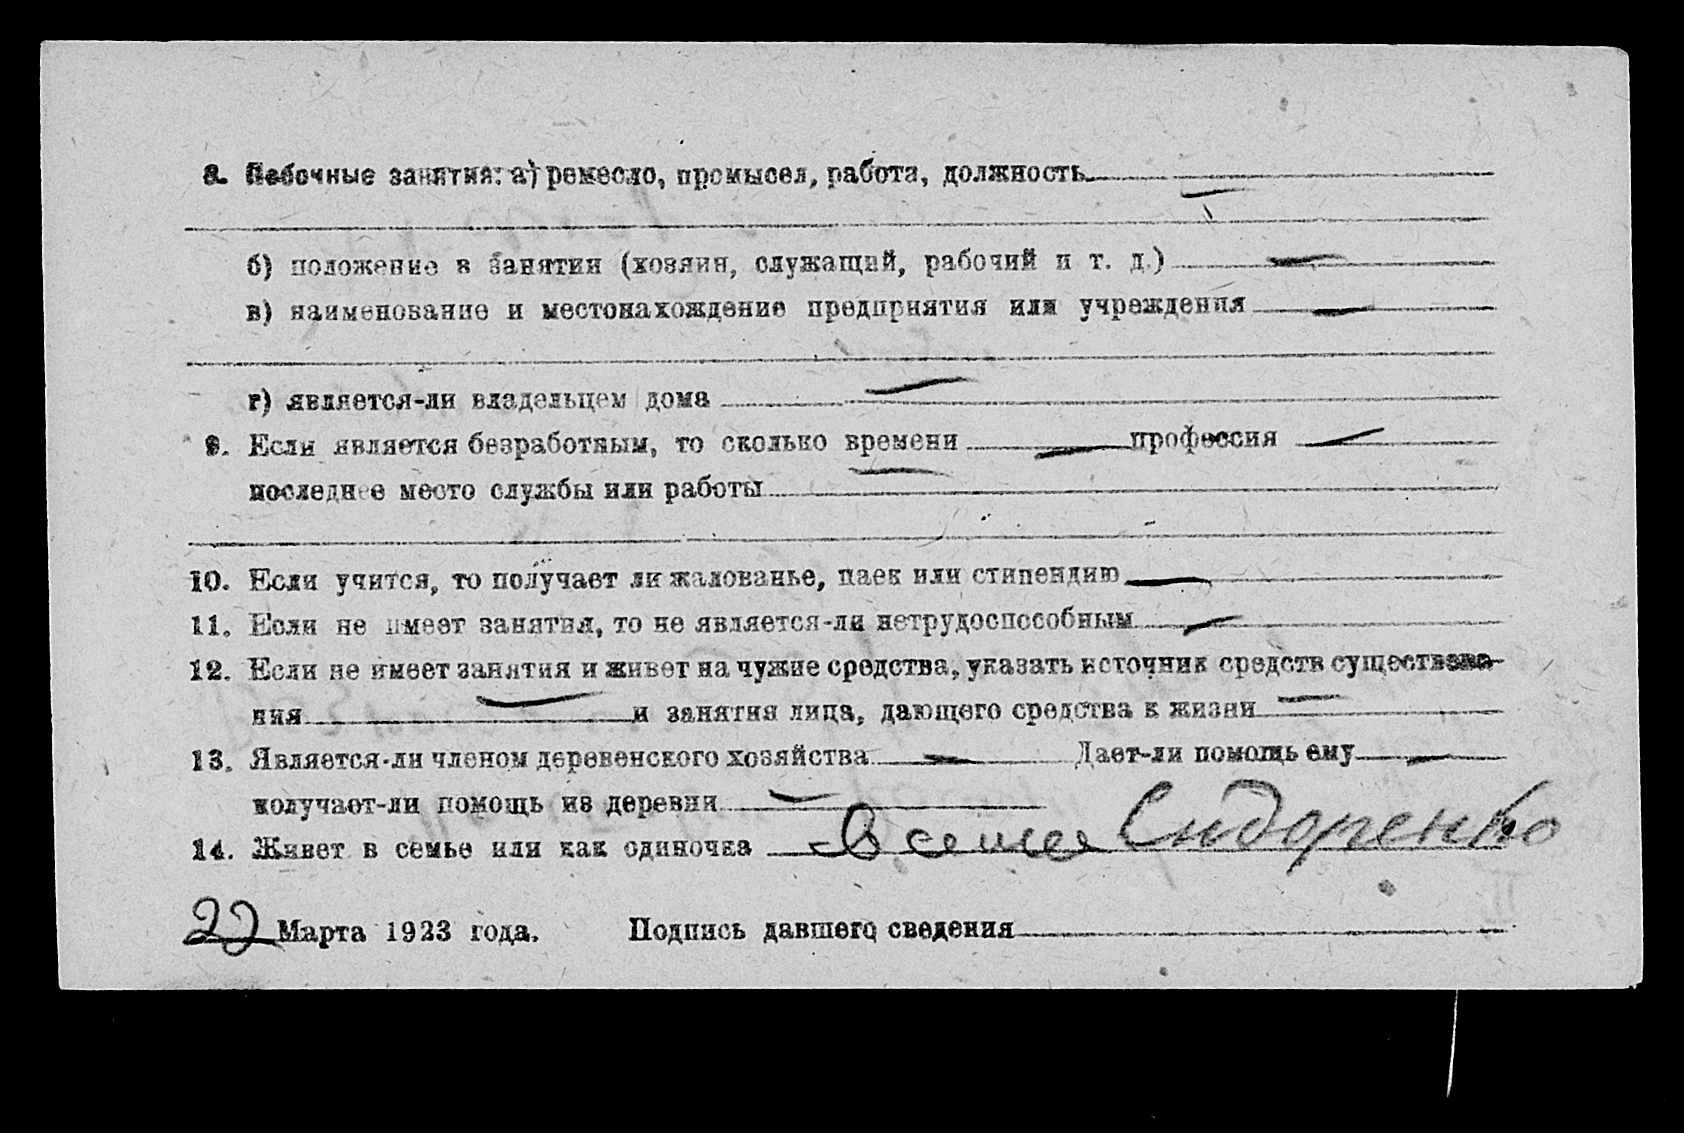 8. Побочные занятия: а) ремесло, промысел, работа, должность —
б) положение в занятии (хозяин, служащий, рабочий и т. д.) —
в) наименование и местонахождение предприятия или учреждения —
г) является-ли владельцем дома —
9. Если является безработным, то сколько времени — профессия —
последнее место службы или работы —
10. Если учится, то получает ли жалованье, паек или стипендию —
11. Если не имеет занятия, то не является-ли нетрудоспособным —
12. Если не имеет занятия и живет на чужие средства, указать источник средств существова-
ния — и занятия лица, дающего средства к жизни —
13. Является-ли членом деревенского хозяйства — Дает-ли помощь ему —
получает-ли помощь из деревни —
14. Живет в семье или как одиночка В семье Сидоренко
22 Марта 1923 года. Подпись давшего сведения